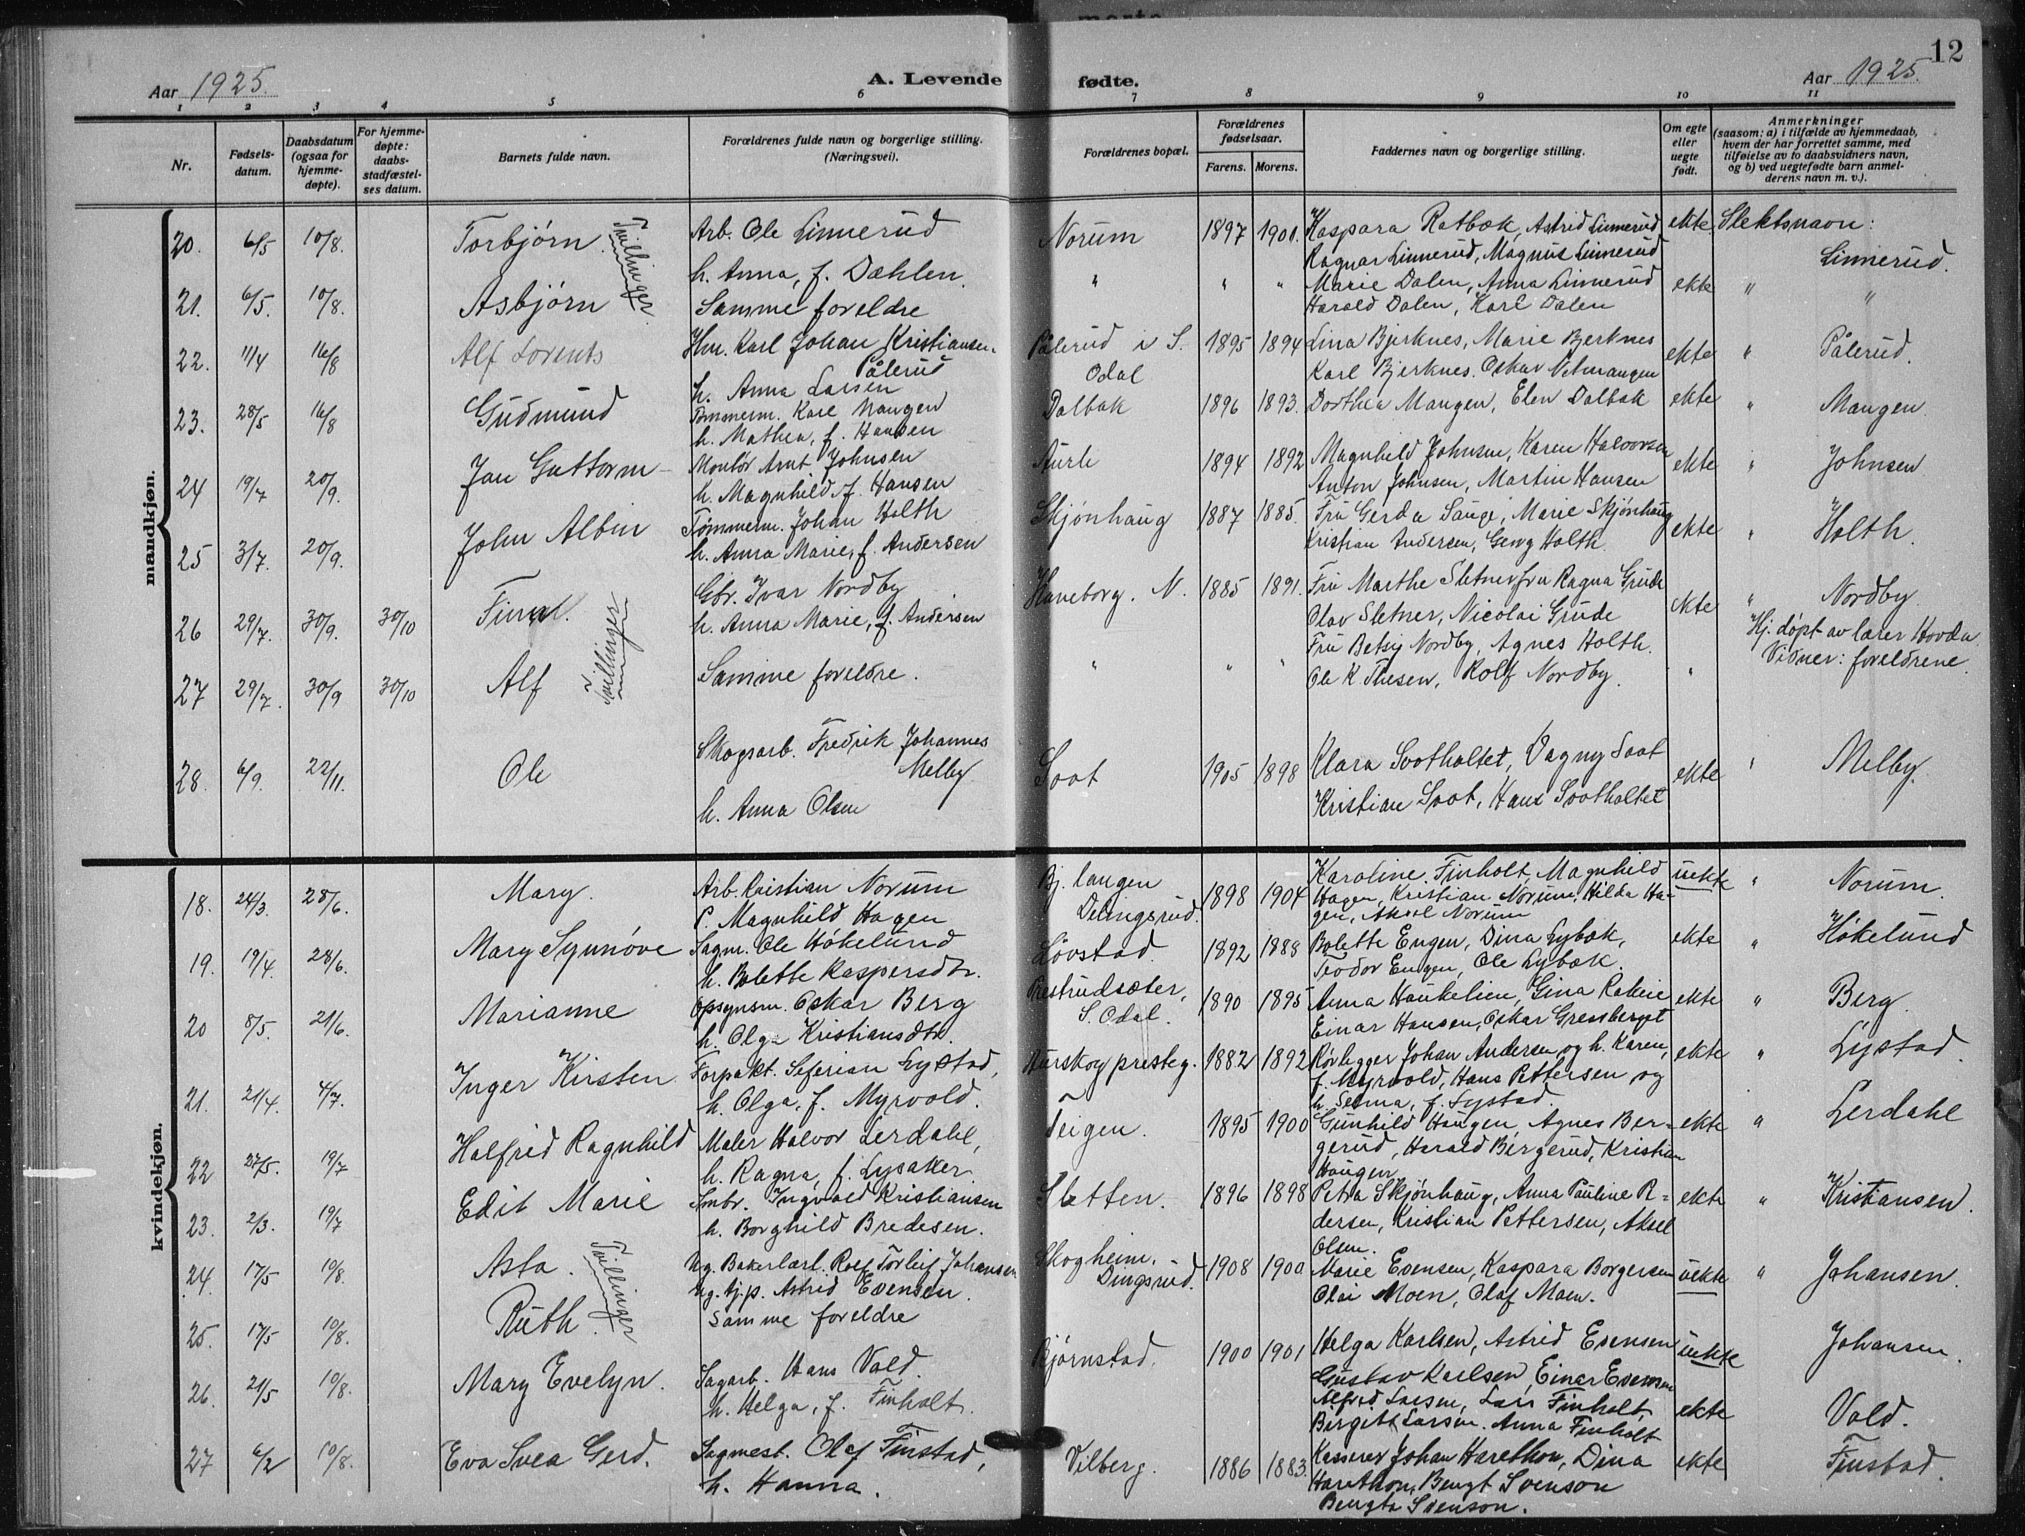 12
Aar 1925. A. Levende fødte. Aar 1925.
1 2 3 4 5 6 7 8 9 10 11
Nr.
Fødsels-
datum.
Daabsdatum
(ogsaa for
hjemme-
døpte).
For hjemme-
døpte:
daabs-
stadfæstel-
ses datum.
Barnets fulde navn.
Forældrenes fulde navn og borgerlige stilling.
(Næringsvei).
Forældrenes bopæl.
Forældrenes
fødselsaar.
Farens. Morens.
Faddernes navn og borgerlige stilling.
Om egte
eller
uegte
født.
Anmerkninger
(saasom: a) i tilfælde av hjemmedaab,
hvem der har forrettet samme, med
tilføielse av to daabsvidners navn,
og b) ved uegtefødte barn anmel-
derens navn m. v.).
mandkjøn.
20. 6/5 10/8. Torbjørn. Tvillinger. Arb. Ole Linnerud
h. Anna, f. Dæhlen.
Norum 1897 1900. Kaspara Ratbæk, Astrid Linnerud
Ragnar Linnerud, Magnus Linnerud
ekte. Slektsnavn:
Linnerud.
21. 6/5. 10/8. Asbjørn Samme foreldre
" " " Marie Dalen, Anna Linnerud
Harald Dalen, Karl Dalen
ekte " "
22. 11/4 16/8 Alf Lorents Hm. Karl Johan Kristiansen
Pålerud
h. Anna Larsen
Pålerud i S.
Odal
1895 1894 Lina Bjerknes, Marie Bjerknes
Karl Bjerknes. Oskar
ekte " Pålerud.
23. 28/5 16/8 Gudmund Tømmerm. Kare Mangen
h. Mathea, f. Hansen
Dalbak 1896 1893. Dorthea Mangen, Elen Dalbak ekte " Mangen
24 19/7 20/9. Jan Guttorm Montør Arnt Johnsen
h. Magnhild f. Hansen
Aurli 1894 1892 Magnhild Johnsen, Karen Halvorsen
Anton Johnsen, Martin Hansen
ekte " Johnsen
25 3/7. 20/9. John Albin Tømmerm. Johan Holth
h. Anna Marie, f. Andersen
Skjønhaug 1887 1885. Fru Gerda Sauge, Marie Skjønhaug
Kristian Andersen, Georg Holth.
ekte " Holth.
26 29/7. 30/9. 30/10 Tvillinger Gbr. Ivar Nordby
h. Anna Marie, f. Andersen
Haneborg. N. 1885 1891. Fru Marthe Sletner fru Ragna Grude
Olav Sletner, Nicolai Grude
ekte " Nordby.
Hj. døpt av lærer Hovda
Vidner: foreldrene.
27 29/7. 30/9 30/10 Alf Samme foreldre.
" " " Fru Betsy Nordby, Agnes Holth.
Ole K. Thesen, Rolf Nordby.
"
28. 6/9. 22/11. Ole Skogsarb. Fredrik Johannes
Melby
h. Anna Olsen
Soot 1905 1898 Klara Sootholtet, Dagny Soot
Kristian Soot, Hans Sootholtet
ekte " Melby.
kvindekjøn.
18. 24/3. 28/6. Mary. Arb. Kristian Norum
P. Magnhild Hagen
Bj. langen
Dingsrud.
1898 1904 Karoline Finholt, Magnhild
Hagen, Kristian Norum, Hilda Ha-
gen, Aksel Norum
uekte " Norum.
19. 19/4. 28/6. Mary Synnøve Sagm. Ole Høkelund
h. Bolette Kaspersdtr.
Løvstad. 1892 1888 Bolette Engen, Dina Lybæk,
Teodor Engen, Ole Lybæk.
ekte " Høkelund
20 8/5. 21/6. Marianne Opsynsm. Oskar Berg
h. Olga Kristiansdtr.
Prestrudsæter,
S. Odal.
1890 1895 Anna Haukelien, Gina Rakeie
Einar Hansen, Oskar Gressberget
ekte " Berg.
21. 21/4. 4/7. Inger Kirsten Forpakt. Seferian Lystad,
h. Olga, f. Myrvold.
Aurskog presteg. 1882 1892 Rørlegger Johan Andersen og h. Karen,
f. Myrvold, Hans Pettersen og
h. Selma, f. Lystad.
ekte " Lystad.
22 27/5. 19/7 Halfrid Ragnhild Maler Halvor Lerdahl,
h. Ragna, f. Lysaker.
Teigen. 1895 1900 Gunhild Haugen, Agnes Ber-
gerud, Harald Bergerud, Kristian
Haugen
ekte " Lerdahl
23. 2/3. 19/7 Edit Marie Smbr. Ingvald Kristiansen
h. Borghild Bredesen.
Sletten. 1896 1898 Petra Skjønhaug, Anna Pauline R-
dersen, Kristian Pettersen, Aksel
Olsen.
ekte " Kristiansen.
24. 17/5 10/8. Asta. Tvillinger Ug. Bakerlærl. Rolf Torleif Johansen
Ug. tj.p. Astrid Evensen.
Skogheim.
Dingsrud.
1908 1900 Marie Evensen, Kaspara Borgersen
Olai Moen, Olaf Moen.
uekte " Johansen.
25. 17/5 10/8. Ruth. Samme foreldre
Helga Karlsen, Astrid Evensen
Gustav Karlsen, Einar Evensen
uekte Johansen.
26. 21/5 10/8. Mary Evelyn. Sagarb. Hans Vold.
h. Helga, f. Finholt.
Bjørnstad. 1900 1901 Alfred Larsen, Lars Finholt,
Birgitt Larsen. Anna Finholt
ekte Vold.
27 6/2 10/8. Eva Svea Gerd. Sagmest. Olaf Finstad,
h. Hanna.
Vilberg. 1886 1883. Kasserer Johan Harethon, Dina
Harethon, Bengt Svenson
Bengta Svenson.
ekte Finstad.